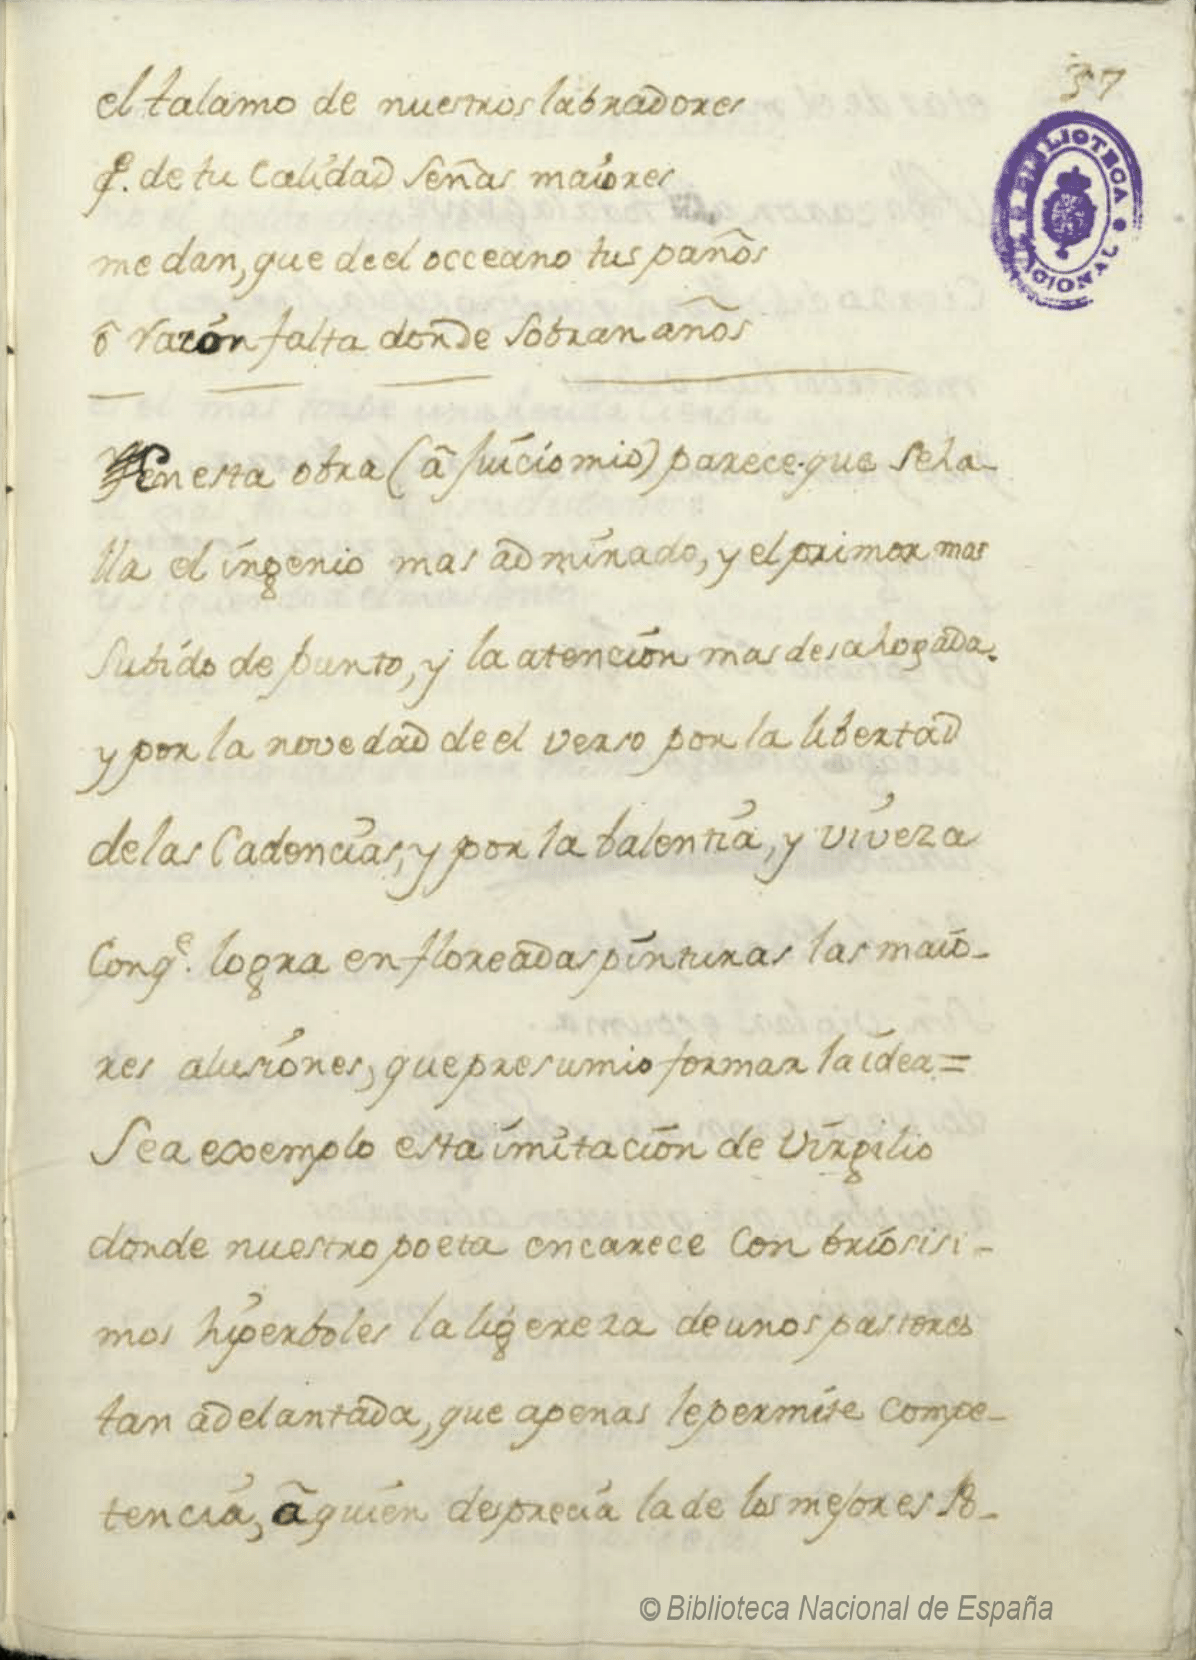 37
el talamo de nuestros labradores
q͏̃e. de tu Calidad señas maiores
me dan, que de el occeano tus paños
ô razon falta donde sobran años
en esta obra (â Juicio mio) parece que se ha-
lla el ingenio mas admirado, y el primor mas
subido de punto, y la atencion mas desahogada.
y por la novedad de el verso por la libertad
de las Cadencias, y por la balentia, y viveza
Conqe. logra en floreadas pinturas las maio-
res alusiones, que presumio formar la idea =
Sea exemplo esta imitacion de Virgilio
donde nuestro poeta encarece Con briosisi-
mos hiperboles la ligereza de unos pastores
tan adelantada, que apenas le permite Compe-
tencia, â quien desprecia la de los mejores So-
BIBLIOTECA NACIONAL
© Biblioteca Nacional de España